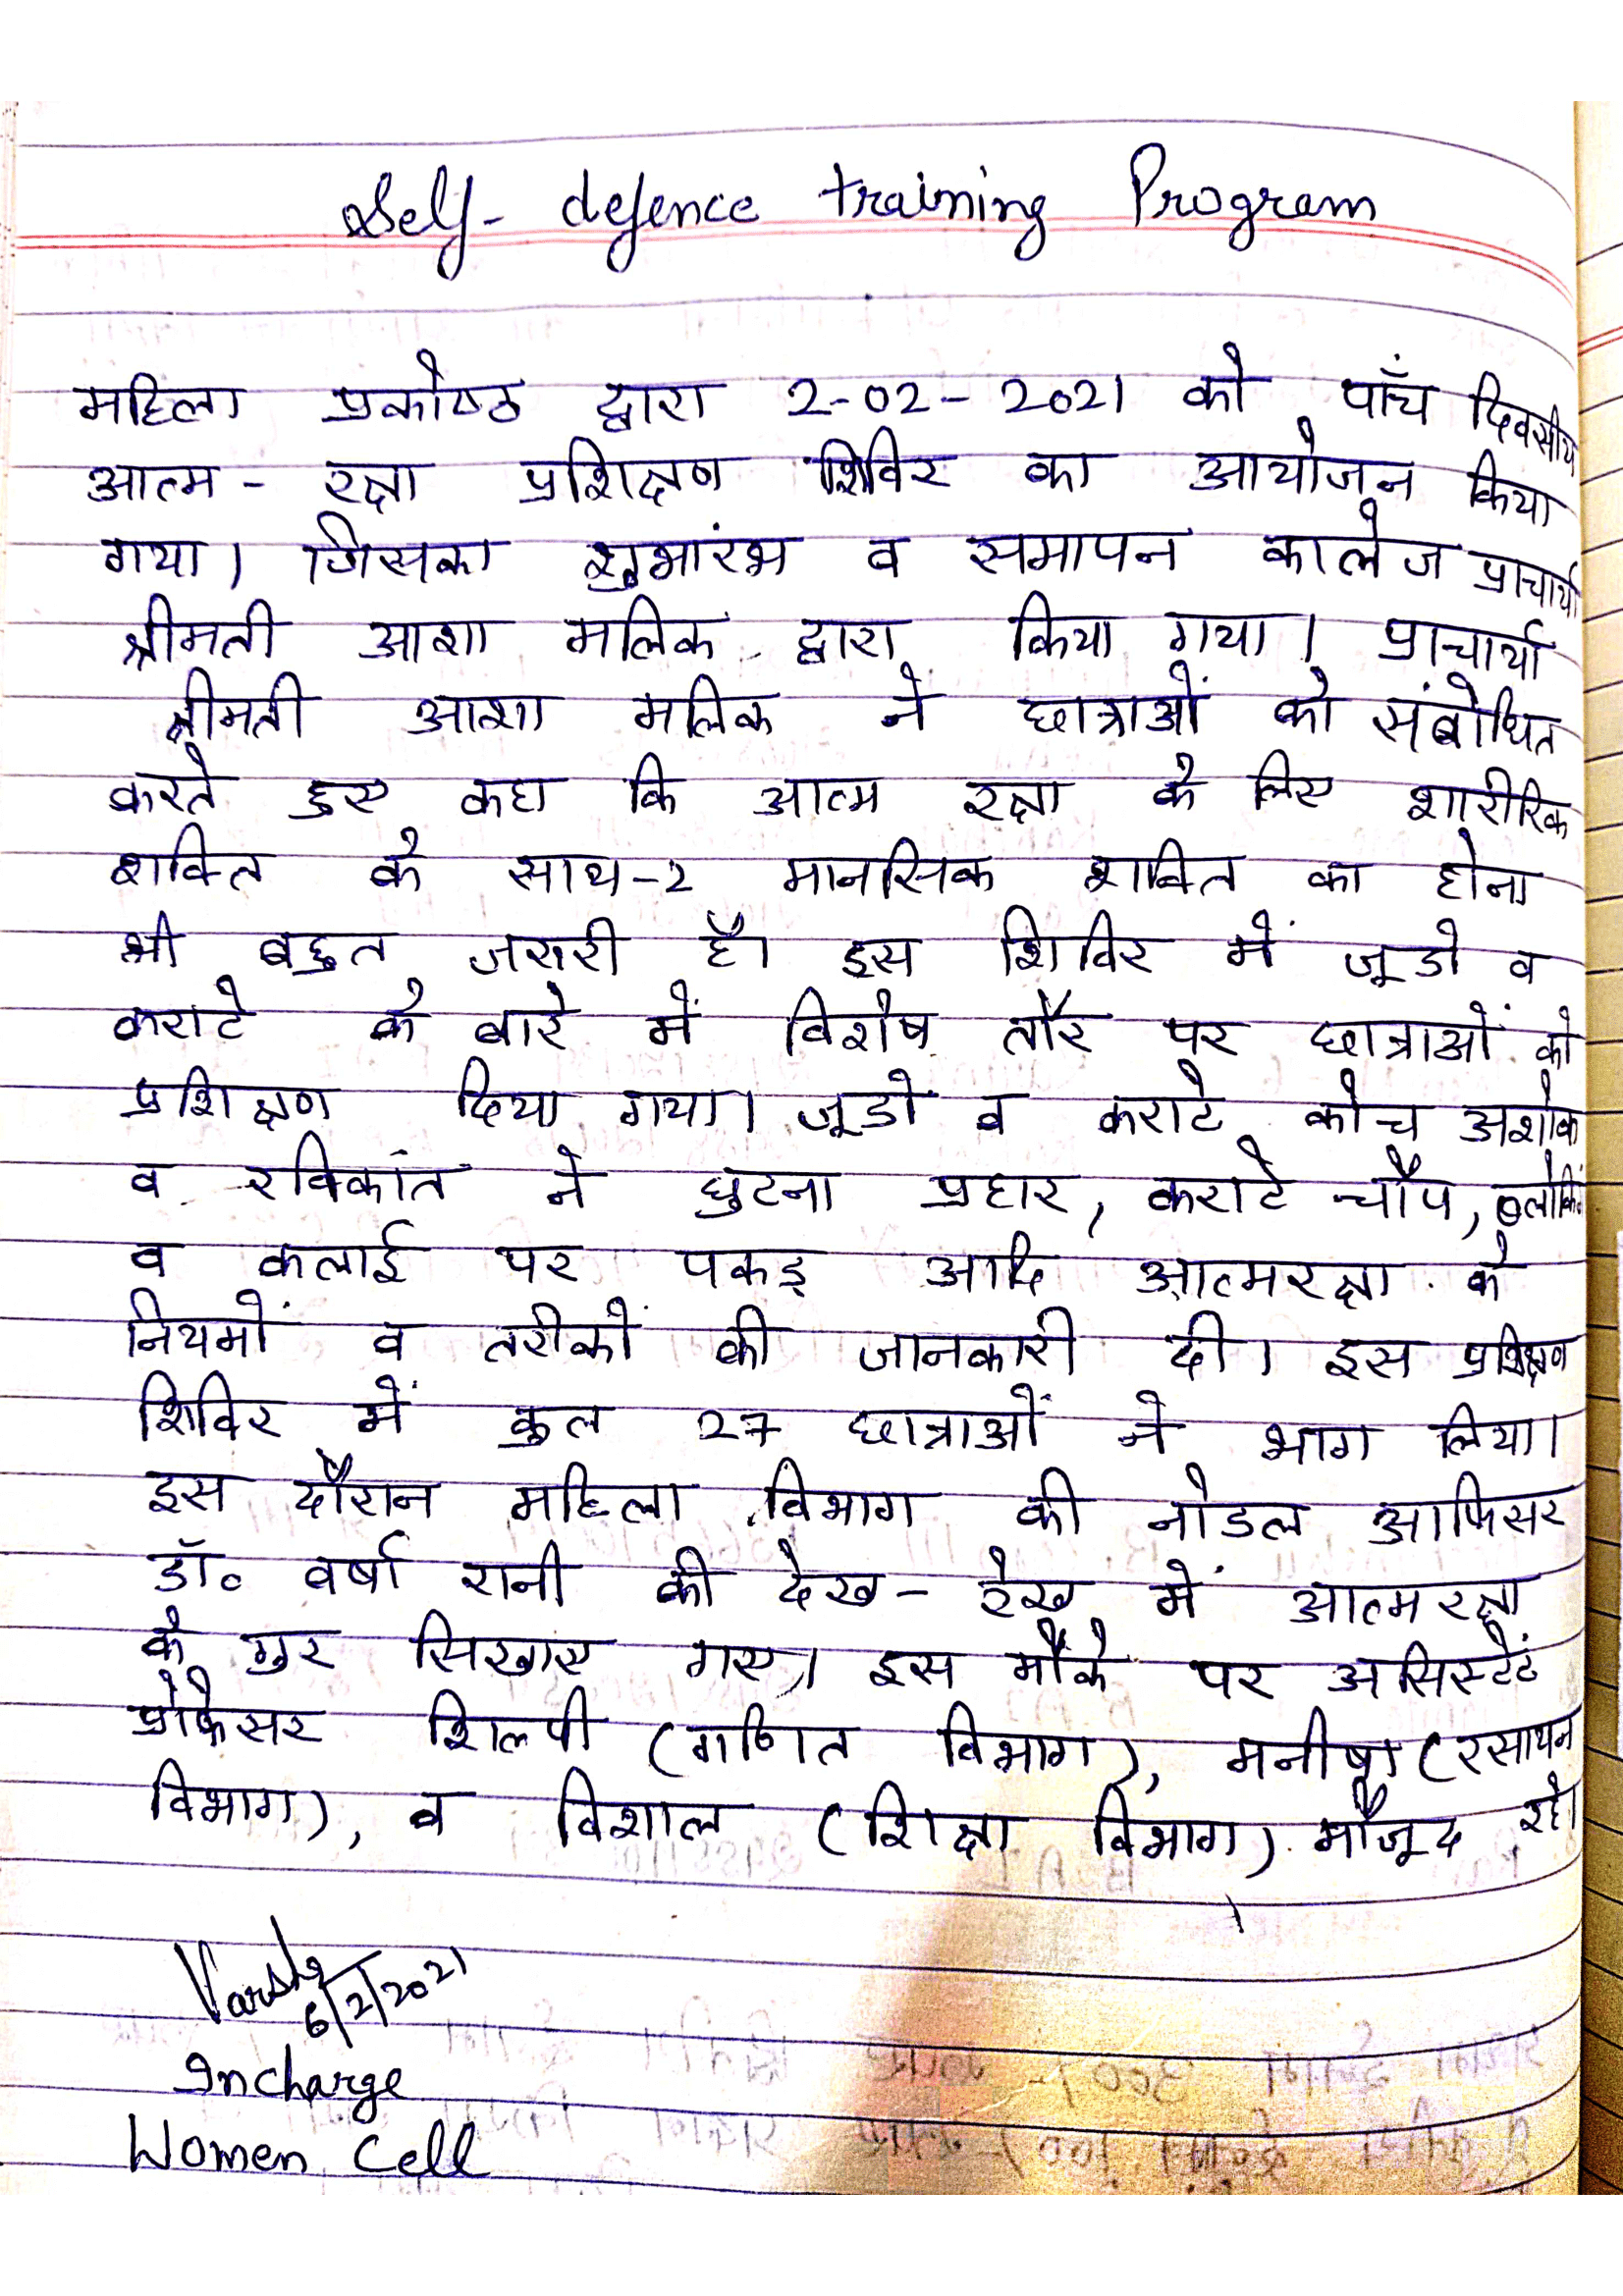 Self- defence training Program
महिला प्रकोष्ठ द्वारा 2-02-2021 को पाँच दिवसीय
आत्म - रक्षा प्रशिक्षण शिविर का आयोजन किया
गया। जिसका शुभारंभ व समापन कालेज प्राचार्या
श्रीमती आशा मलिक द्वारा किया गया। प्राचार्या
श्रीमती आशा मलिक ने छात्राओं को संबोधित
करते हुए कहा कि आत्म रक्षा के लिए शारीरिक
शक्ति के साथ-2 मानसिक शक्ति का होना
भी बहुत जरुरी है। इस शिविर में जूडो व
कराटे के बारे में विशेष तौर पर छात्राओं को
प्रशिक्षण दिया गया। जूडो व कराटे कोच अशोक
व रविकांत ने घुटना प्रहार, कराटे चौप, ब्लोकिंग
व कलाई पर पकड़ आदि आत्मरक्षा के
नियमों व तरीकों की जानकारी दी। इस प्रशिक्षण
शिविर में कुल 27 छात्राओं ने भाग लिया।
इस दौरान महिला विभाग की नोडल आफिसर
डॉ॰ वर्षा रानी की देख - रेख में आत्मरक्षा
के गुर सिखाए गए। इस मौके पर असिस्टेंट
प्रोफेसर शिल्पी (गणित विभाग), मनीषा (रसायन
विभाग), व विशाल (शिक्षा विभाग) मौजूद रहे।
Varsha
6/2/2021
Incharge
Women Cell